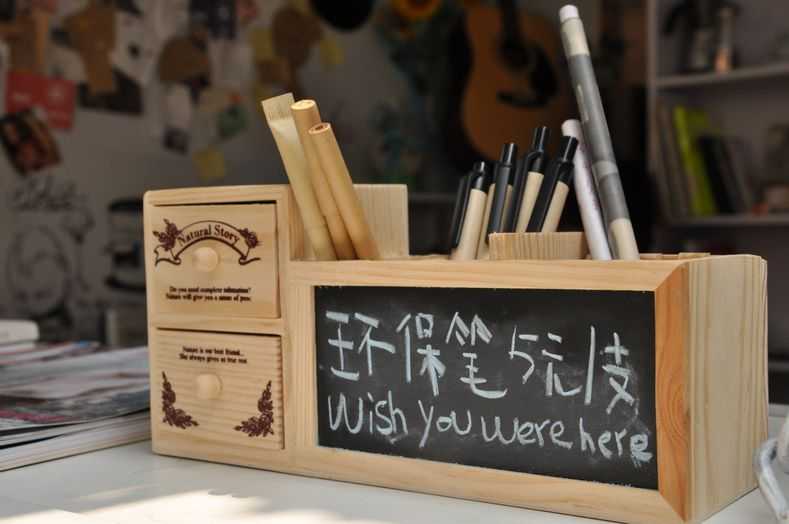 Natural Story
Do you need complete relaxation?
Nature will give you a sense of peac
Nature is our best friend...
She always gives us true rest.
环保笔 5元/支
Wish you were here